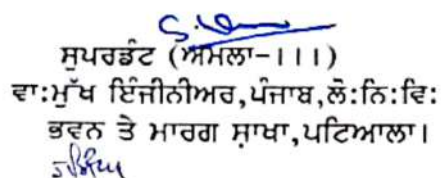 ਸੁਪਰਡੰਟ (ਅਮਲਾ-III)
ਵਾ:ਮੁੱਖ ਇੰਜੀਨੀਅਰ,ਪੰਜਾਬ,ਲੋ:ਨਿ:ਵਿ:
ਭਵਨ ਤੇ ਮਾਰਗ ਸ਼ਾਖਾ,ਪਟਿਆਲਾ।